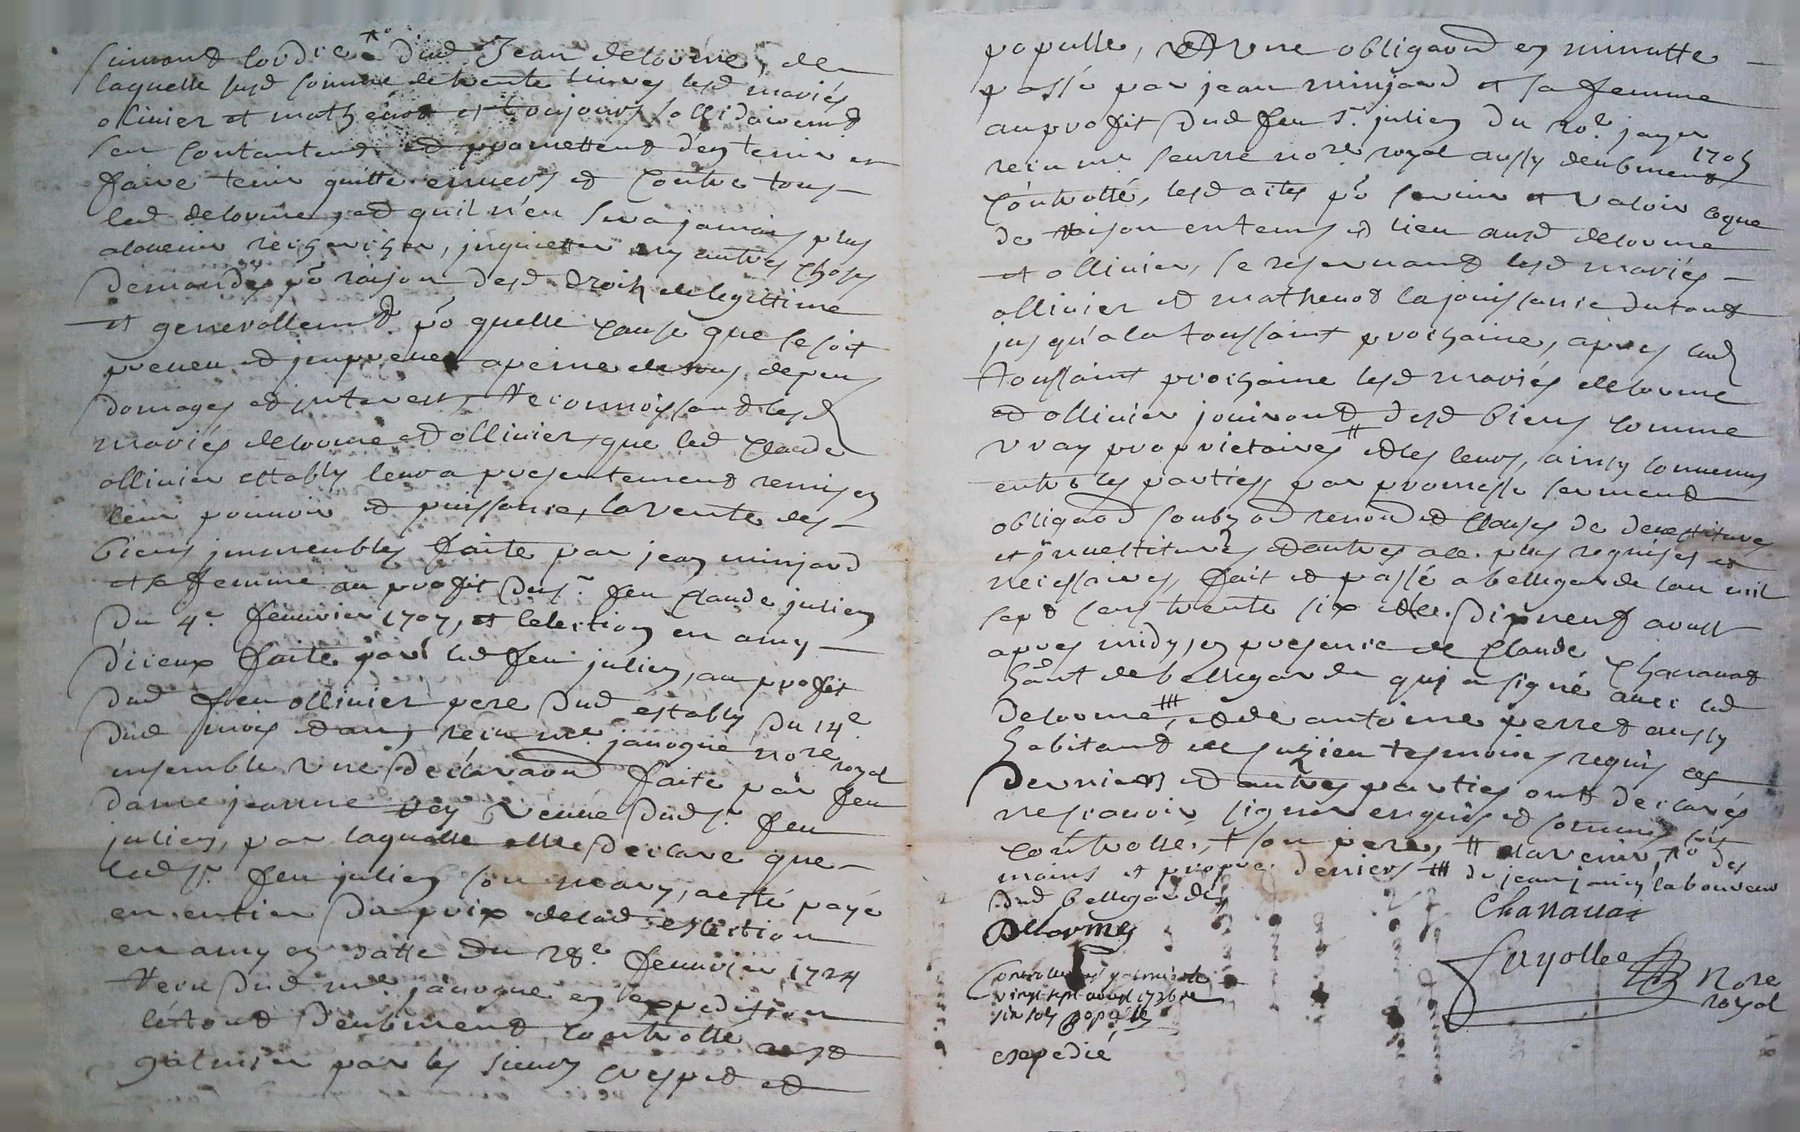 laquelle susd somme de trente livres lesd mariés
ollinier et mathevot et toujours sollidairemt
sen contantent et promettent d'en tenir et
faire tenir quitte envers et contre tous
led delorme, et quil n'en sera jamais plus
alavenir recherché, inquietté ny autres choses
demandés po raison desd droits de legittime
et generallemt po quelle cause que se soit
preveu et impreveu apeine de tous depens
domages et interests, Reconnoissant lesd
mariés delorme et ollinier, que led Claude
ollinier estably leur a presentement remis en
leur pouvoir et puissance, la vente des
biens immeubles faite par jean minjard
et sa femme au profit du sr feu Claude julien
du 4e feuvrier 1707, et l'election en amy
d'iceux faite par led feu julien, au profit
dud feu ollinier pere dud estably du 14e
dud mois et an, receu me janogne nore royal
ensemble une declaraon faite par feu
dame jeanne veuve dud sr feu
julien, par laquelle elle declare que
led sr feu julien son mary, a esté payé
en entier du prix de lad eslection
en amy en datte du 28e feuvrier 1724
Receu dud me janogne en expedition
le tout deubment controllé aud
galmier par les sieurs crespet et
populle, et une obligaon en minutte
passé par jean minjard et sa femme
au profit dud feu sr julien du 20e janer 1705
receu me seurre nore royal aussy deubment
controllé, lesd actes po servir et valoir ceque
de raison en tems et lieu ausd delorme
et ollinier, se reservant lesd mariés
ollinier et mathevot la jouissance du tout
jusqu'a la toussaint prochaine, apres lad
toussaint prochaine lesd mariés delorme
et ollinier jouiront desd biens comme
vray proprietaires # et les leurs, ainsy convenus
entre les parties, par promesse serment
obligaon soubz on renon et clauses de devestiture
et investiture et autres plus requises et
necessaires, fait et passé a bellegarde lan mil
sept cens trente six et le dixneuf avust
apres midy, en presence de Claude Chavanat
hant de bellegarde qui a signé avec led
delorme, ### et de antoine perret aussy
habitant de tesmoins requis ces
derniers et autres parties ont declarés
ne scavoir signer enquis et sommés
controllé, + son pere, # alavenir, des
mains et propres deniers ### de jean laboureur
dud bellegarde
Delorme
Chavanat
Fayolle Nore
royal
Controllé a st galmier le
vingt sept avust 1736 re
six sols populle
expedié